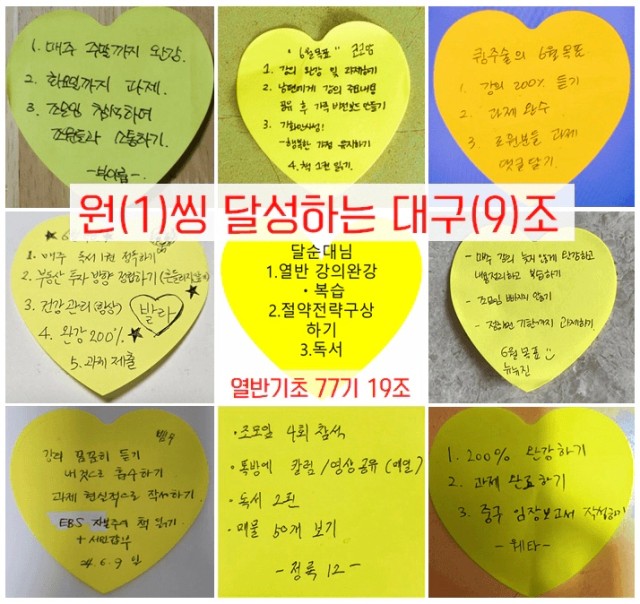 1. 매주 주말까지 완강.
2. 화요일까지 과제.
3. 조모임 참석하여
조원들과 소통하기.
"6월목표"
1. 강의 완강 및 과제하기
2. 남편에게 강의 주요내용
공유 후 가족 비전보드 만들기
3. 기화안사성!
- 행복한 가정 유지하기
4. 책 1권 읽기.
퀸주술의 6월 목표
1. 강의 200% 듣기
2. 과제 완수
3. 조원분들 과제
댓글달기.
원(1)씽 달성하는 대구(9)조
1. 매주 독서 1권 정독하기
2. 부동산 투자 방향 정립하기
3. 건강관리 (항상)
4. 완강 200%
5. 과제 제출
발라
달순대님
1.열반 강의완강
• 복습
2.절약전략구상
하기
3.독서
열반기초 77기 19조
- 매주 강의 늦지 않게 완강하고
내용정리하고 복습하기
- 조모임 빠지지 않기
- 정해진 기한까지 과제하기
6월 목표
뉴뉴진
강의 꼼꼼히 듣기
내 것으로 흡수하기
과제 현실적으로 작성하기.
EBS 자본주의 책 읽기.
+ 시민갑부
24. 6. 9 일
· 조모임 4회 참석
· 톡방에 칼럼/영상 공유 (매일)
· 독서 2권
· 매물 50개 보기
- 정록 12 -
1. 200% 완강하기
2. 과제 완료하기
3. 중구 임장보고서 작성하기
- 웨타 -